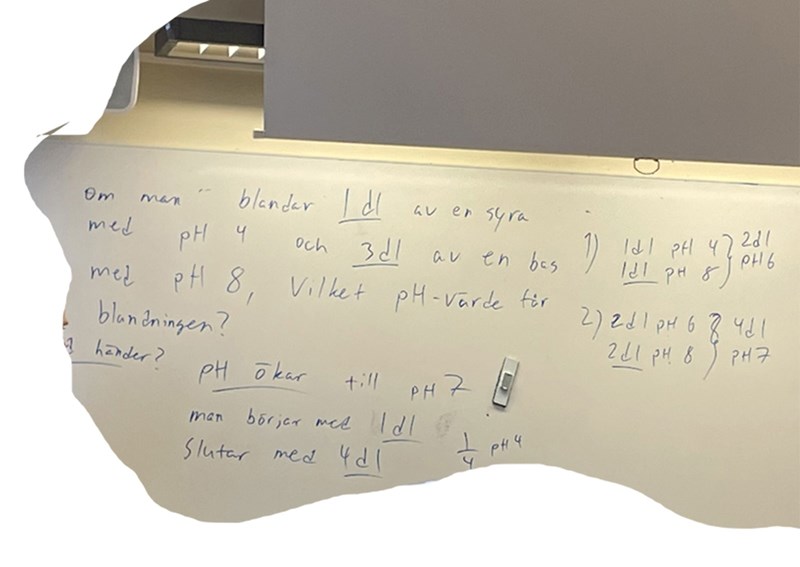 om man blandar 1dl av en syra
med pH 4 och 3dl av en bas
med pH 8, Vilket pH-värde får
blandningen?
händer?
pH ökar till pH 7
man börjar med 1dl
Slutar med 4dl
1/4 pH4
1) 1dl pH 4 } 2dl
1dl pH 8 } pH6
2) 2dl pH 6 } 4dl
2dl pH 8 } pH7